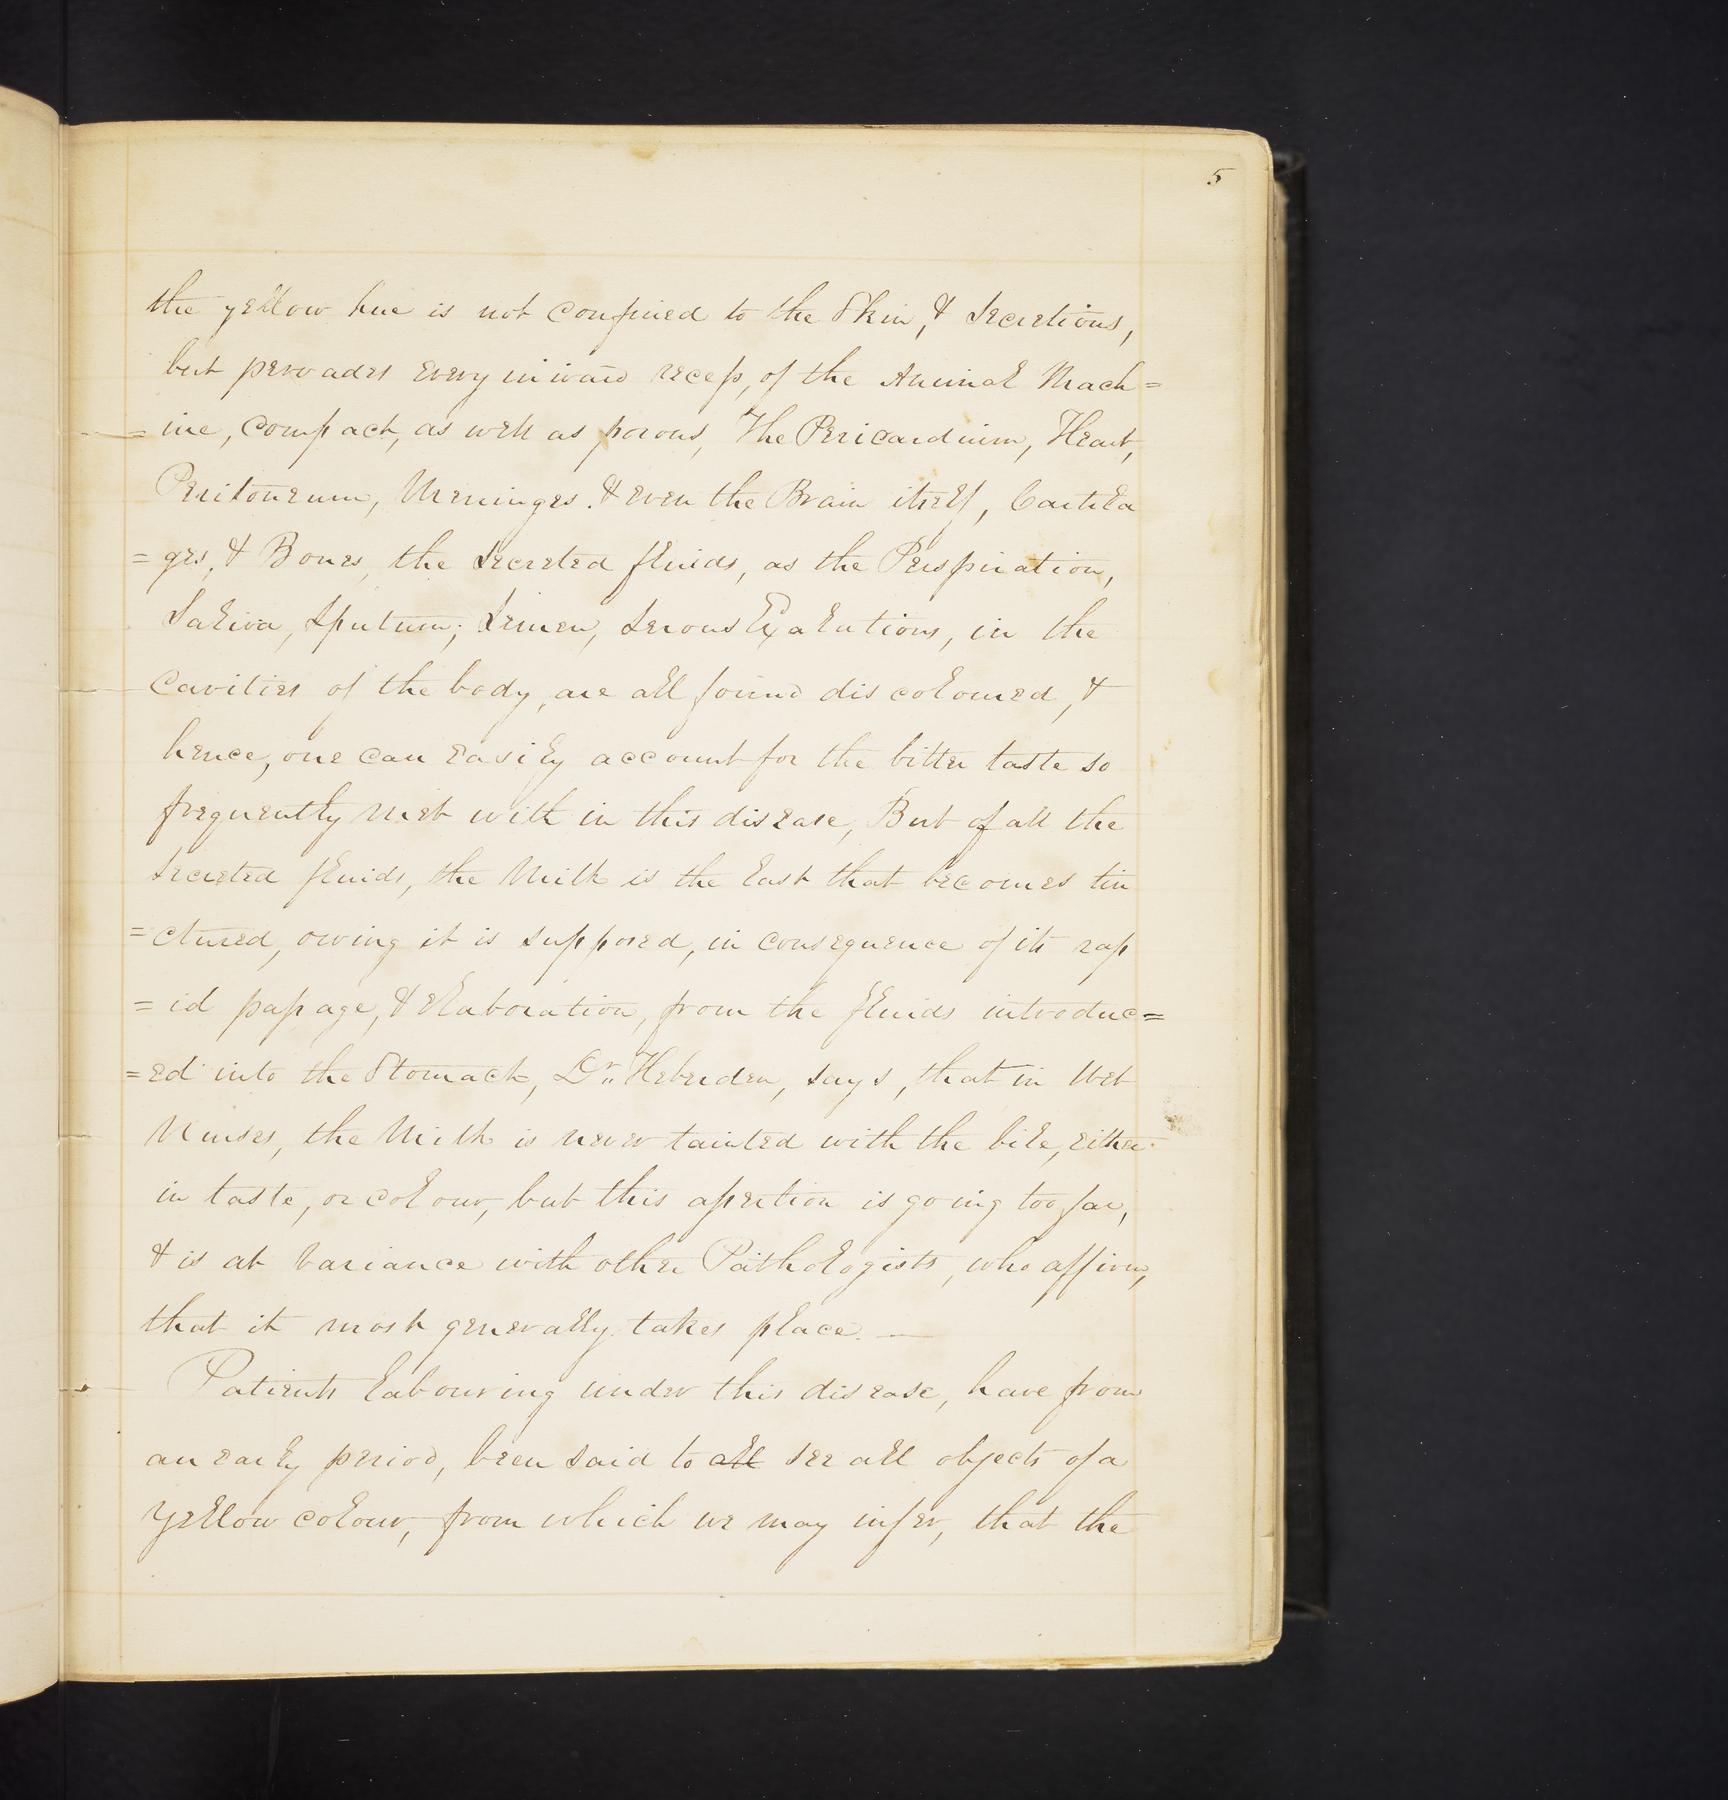 5
the yellow hue is not confined to the Skin, & Secretions,
but pervades every inward recess, of the Animal Mach=
=ine, compact, as well as porous, The Pericardium, Heart,
Peritoneum, Meninges. & even the Brain itself, Cartila
=ges, & Bones, the Secreted fluids, as the Perspiration,
Saliva, Sputum; Semen, Serous Exalations, in the
Cavities of the body, are all found discoloured, &
hence, one can easily account for the bitter taste so
frequently met with in this disease, But of all the
Secreted fluids, the Milk is the last that becomes tin
=ctured, owing it is supposed, in consequence of its rap
=id passage, & elaboration, from the fluids introduc=
=ed into the Stomach, Dr. Heberden, says, that in Wet
Nurses, the Milk is never tainted with the bile, either
in taste, or colour, but this assertion is going too far,
& is at variance with other Pathologists, who affirm,
that it most generally takes place. —
Patients labouring under this disease, have from
an early period, been said to all see all objects of a
Yellow colour, from which we may infer, that the